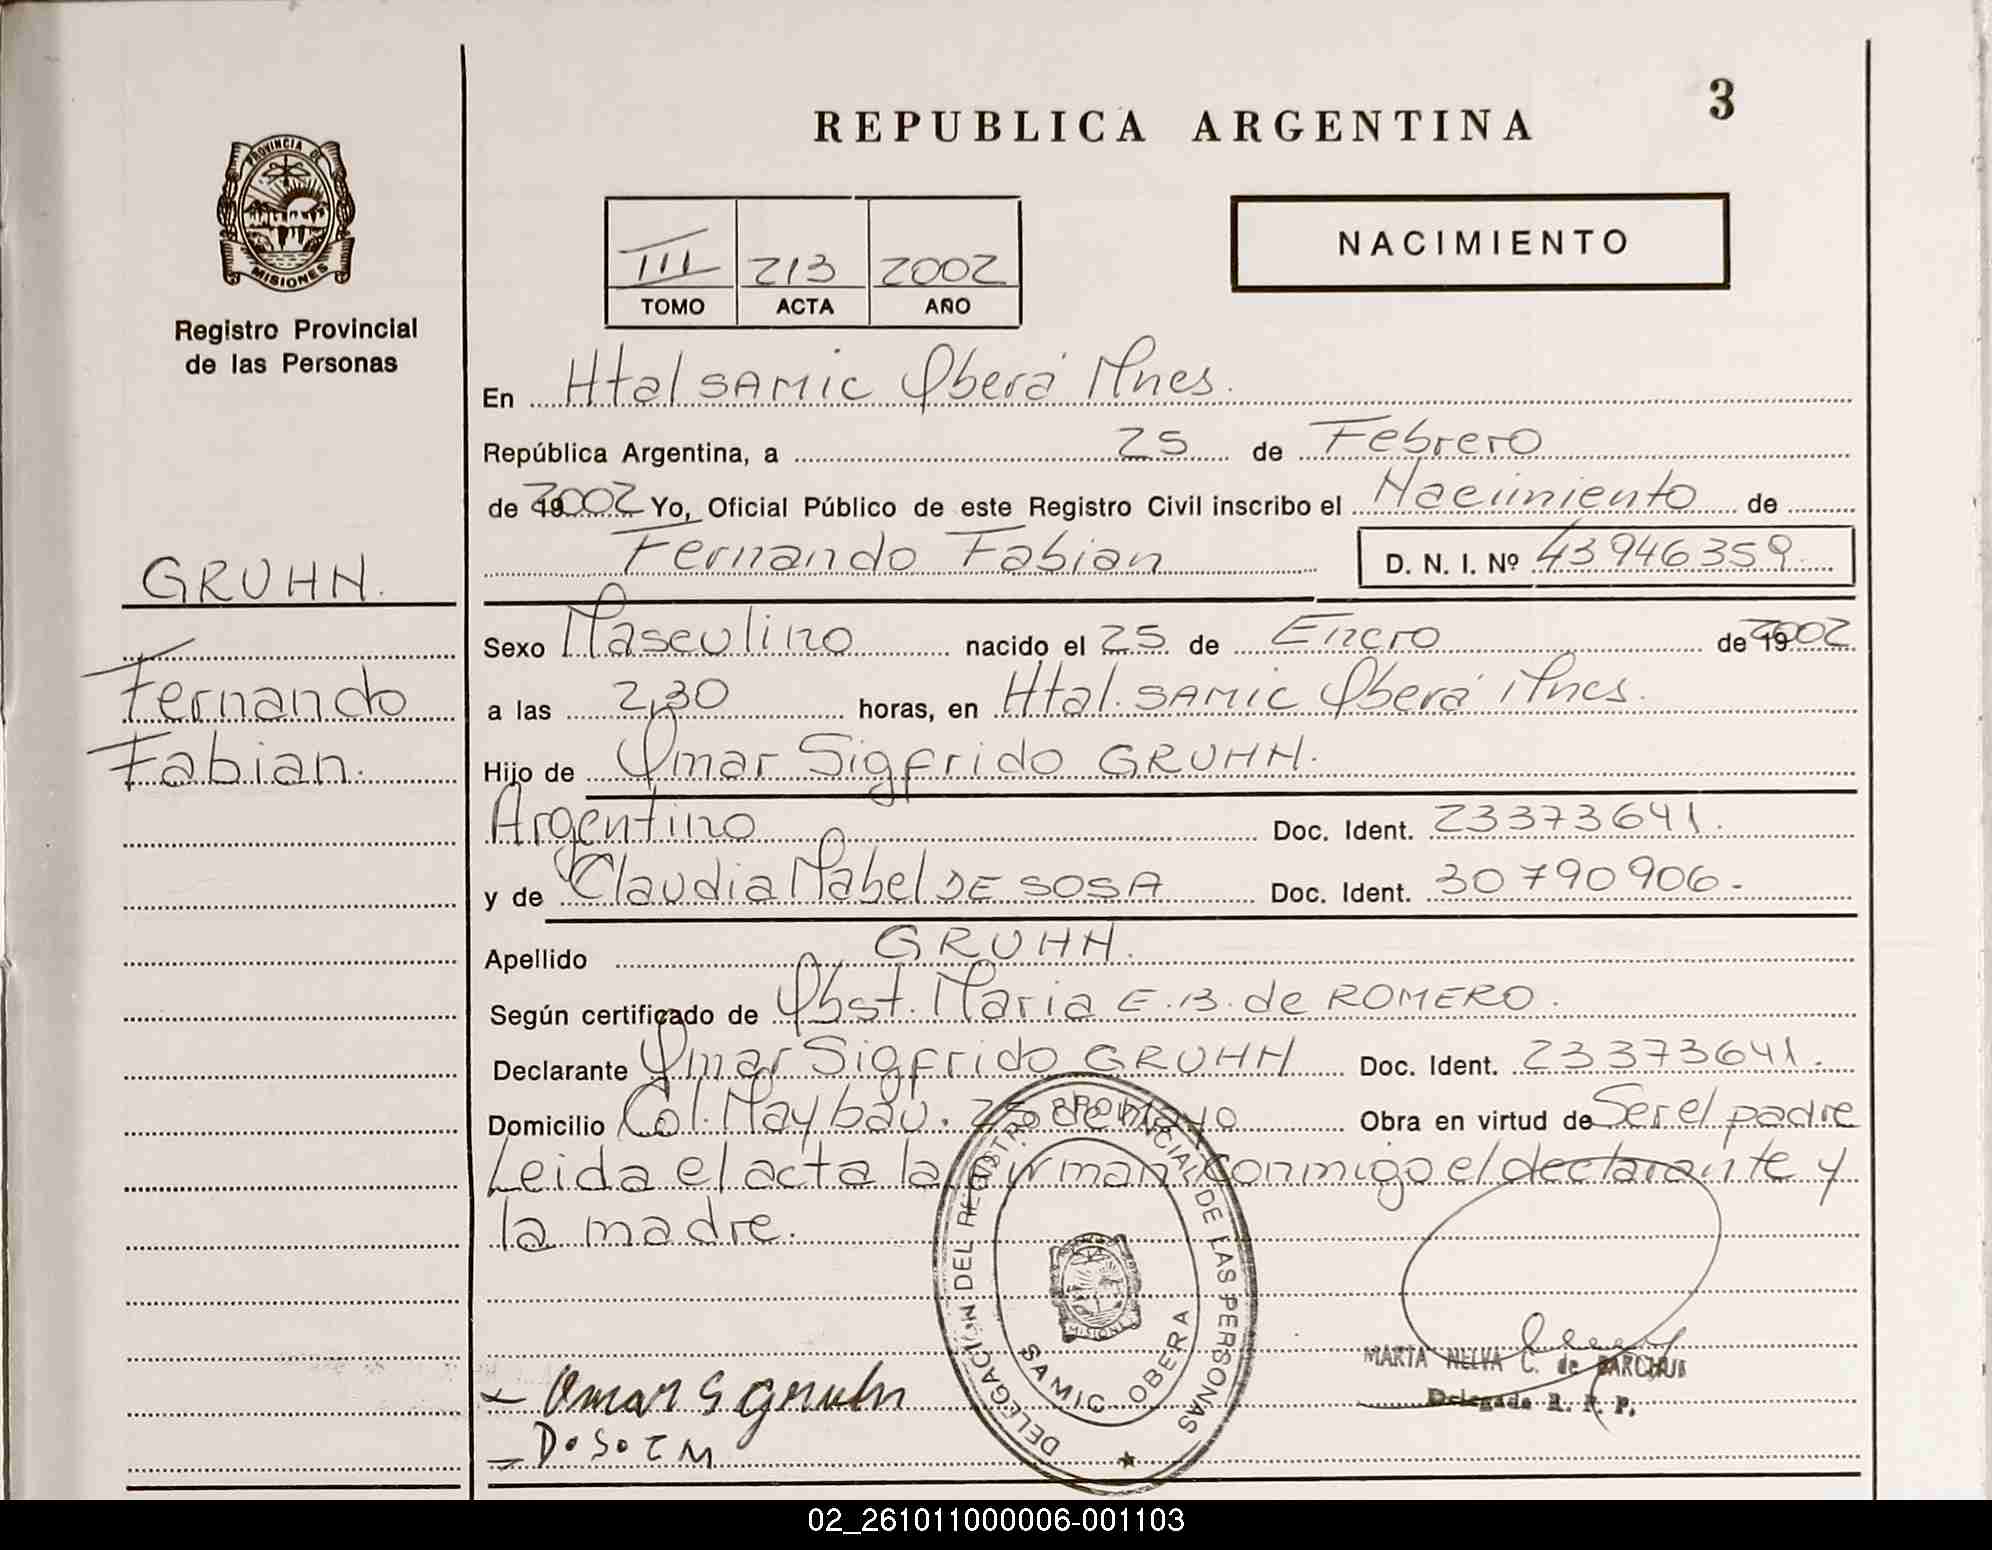 3
REPUBLICA ARGENTINA
PROVINCIA DE
MISIONES
Registro Provincial
de las Personas
NACIMIENTO
III 213 2002
TOMO ACTA AÑO
En Htal SAMIC Oberá Mnes.
República Argentina, a 25 de Febrero
de 2002 Yo, Oficial Público de este Registro Civil inscribo el Nacimiento de
Fernando Fabian D. N. I. Nº 43946359
GRUHN.
Fernando
Fabian.
Sexo Masculino nacido el 25 de Enero de 2002
a las 2,30 horas, en Htal. SAMIC Oberá Mnes.
Hijo de Omar Sigfrido GRUHN.
Argentino Doc. Ident. 23373641.
y de Claudia Mabel DE SOSA Doc. Ident. 30790906.
Apellido GRUHN.
Según certificado de Obst. Maria E.B. de ROMERO.
Declarante Omar Sigfrido GRUHN Doc. Ident. 23373641.
Domicilio Col. Maybau. 25 de Mayo Obra en virtud de Ser el padre
Leida el acta la firman conmigo el declarante y
la madre.
DELEGACION DEL REGISTRO PROVINCIAL DE LAS PERSONAS
MISIONES
SAMIC OBERA
MARTA NELVA C. de
Delegada R. P. P.
- Omar S gruhn
- D.S.C M
02_261011000006-001103